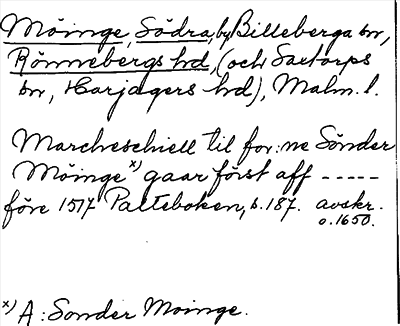 Möinge, Södra, by Billeberga sn,
Rönnebergs hd, (och Saxtorps
sn, Harjagers hd), Malm. l.
Marcheschiell til for:ne Sönder
Möinge x) gaar först aff -----
före 1517 Palteboken, s. 187. avskr.
o. 1650.
x) A: Sonder Moinge.